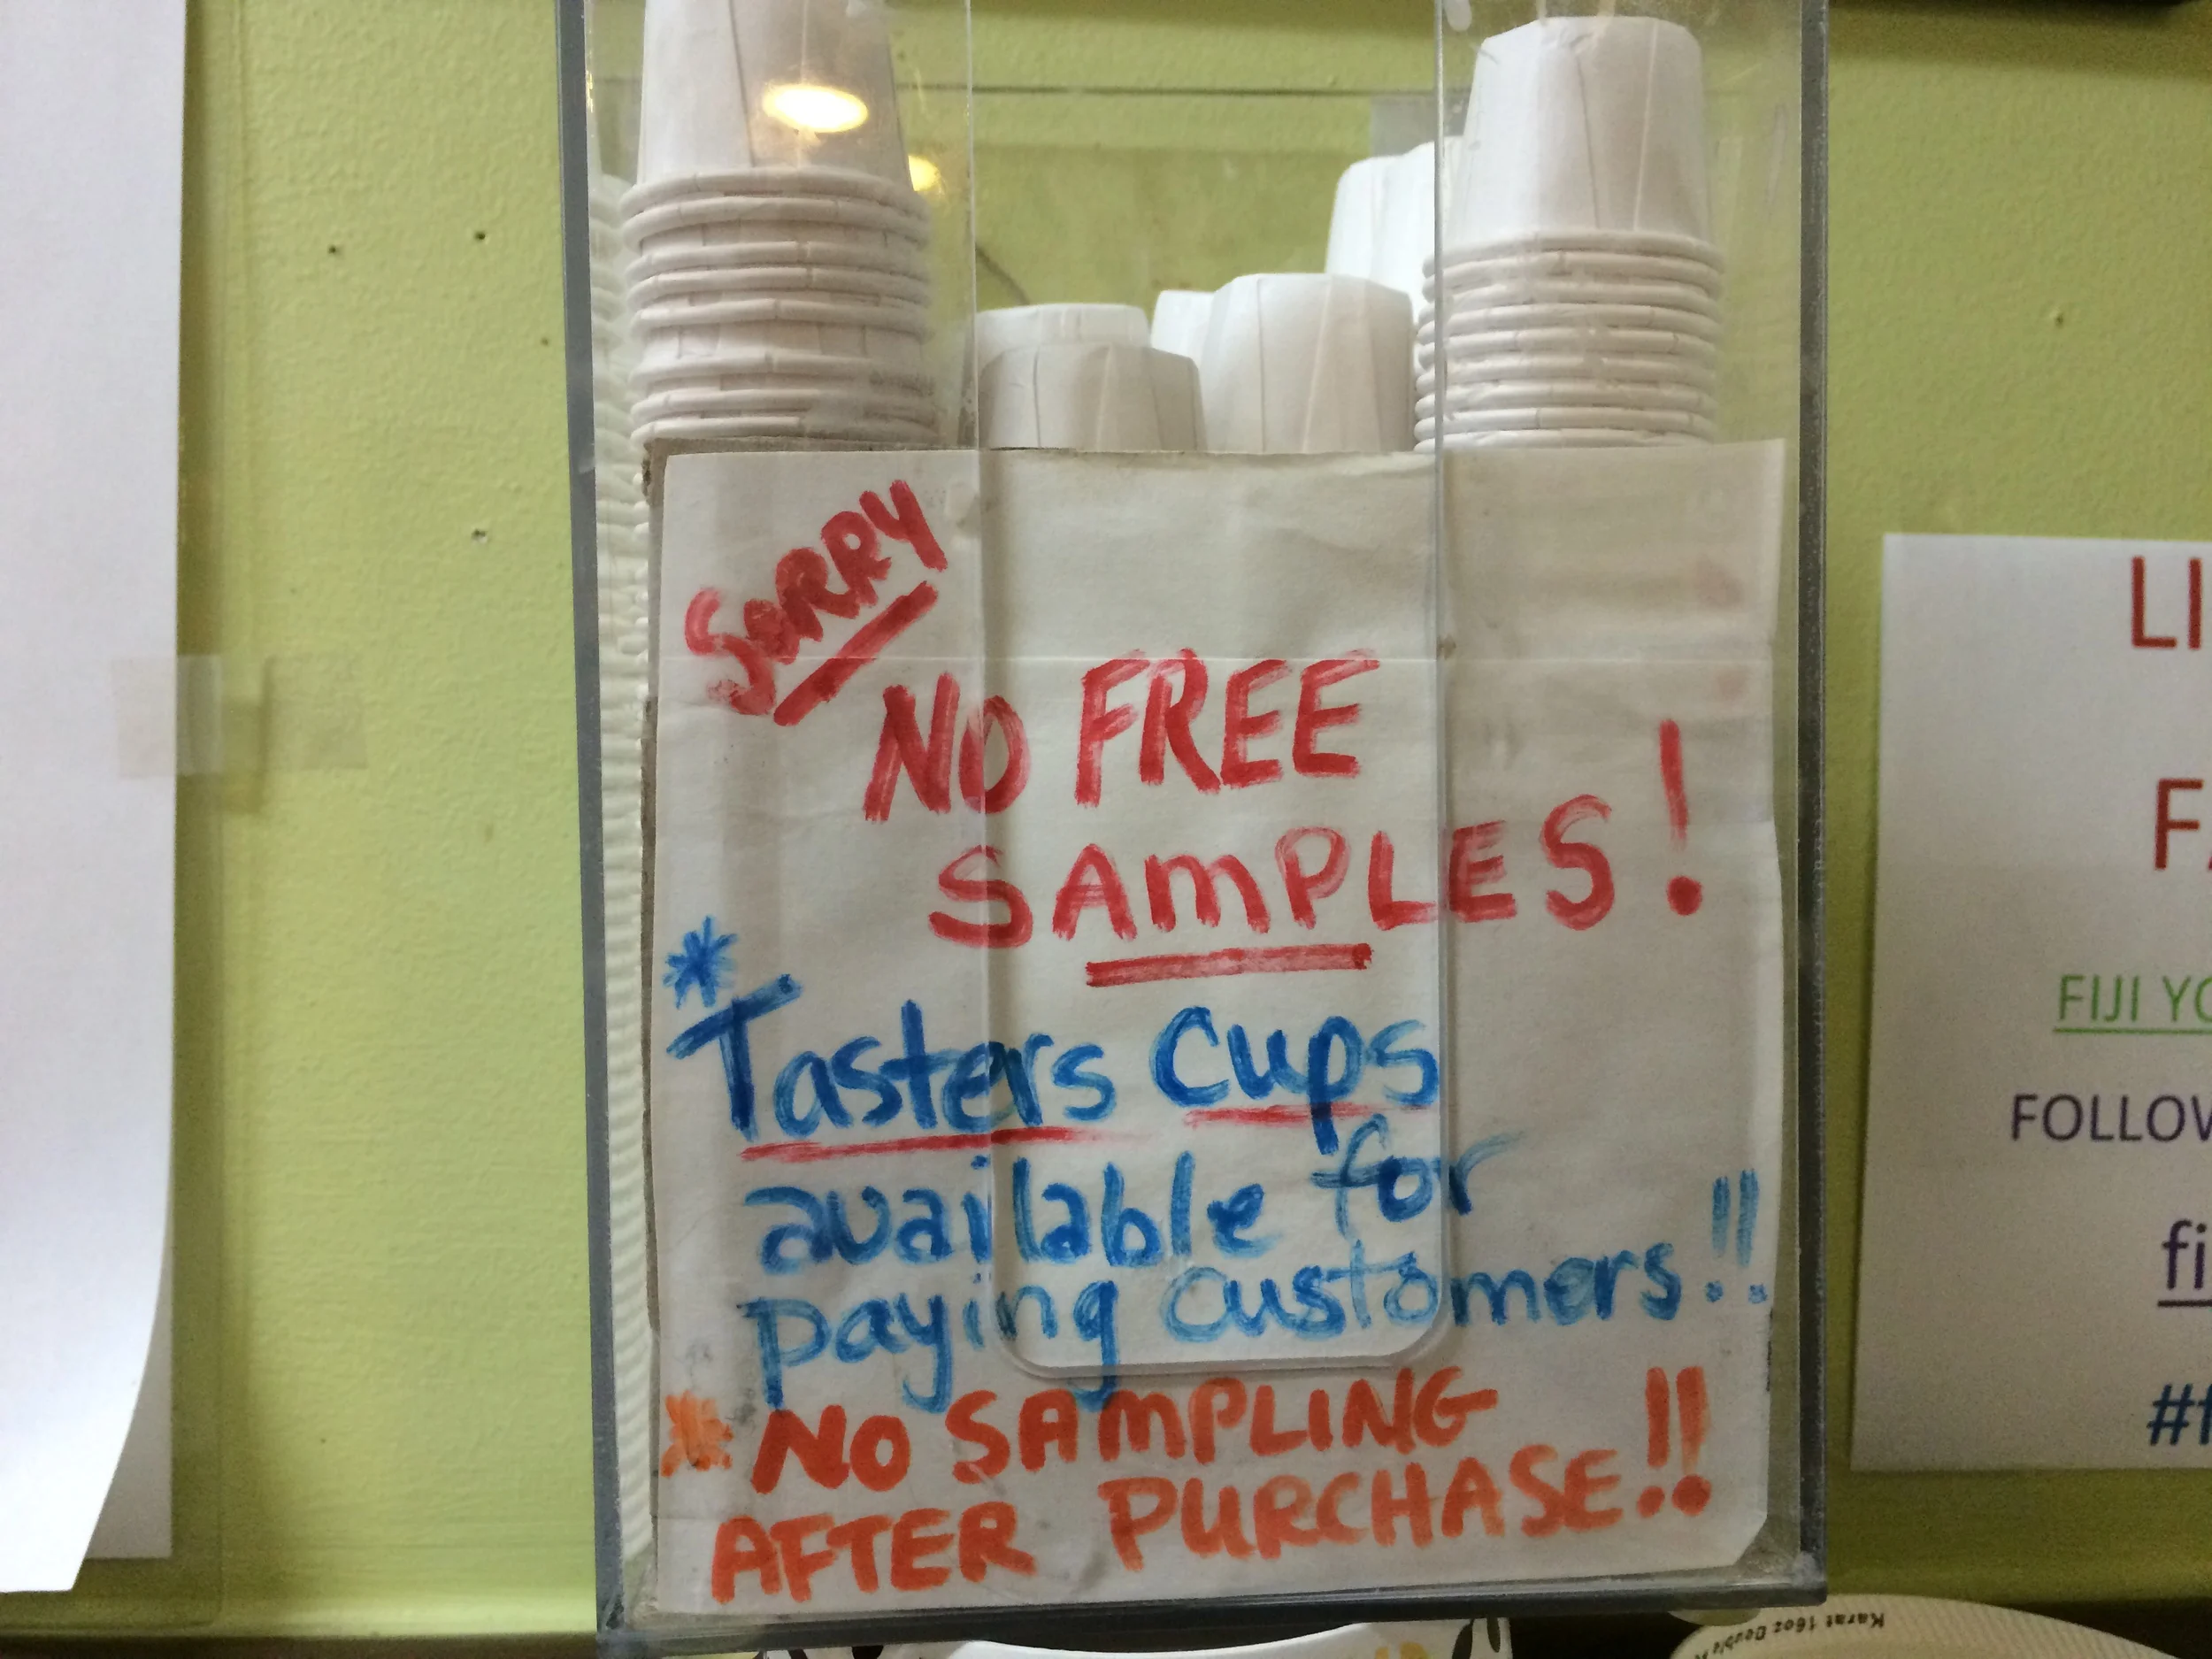 SORRY
NO FREE
SAMPLES!
*Tasters Cups
available for
paying customers!!
* NO SAMPLING
AFTER PURCHASE!!
LI
FA
FIJI YO
FOLLOW
fi
#f
Karat 16oz Double